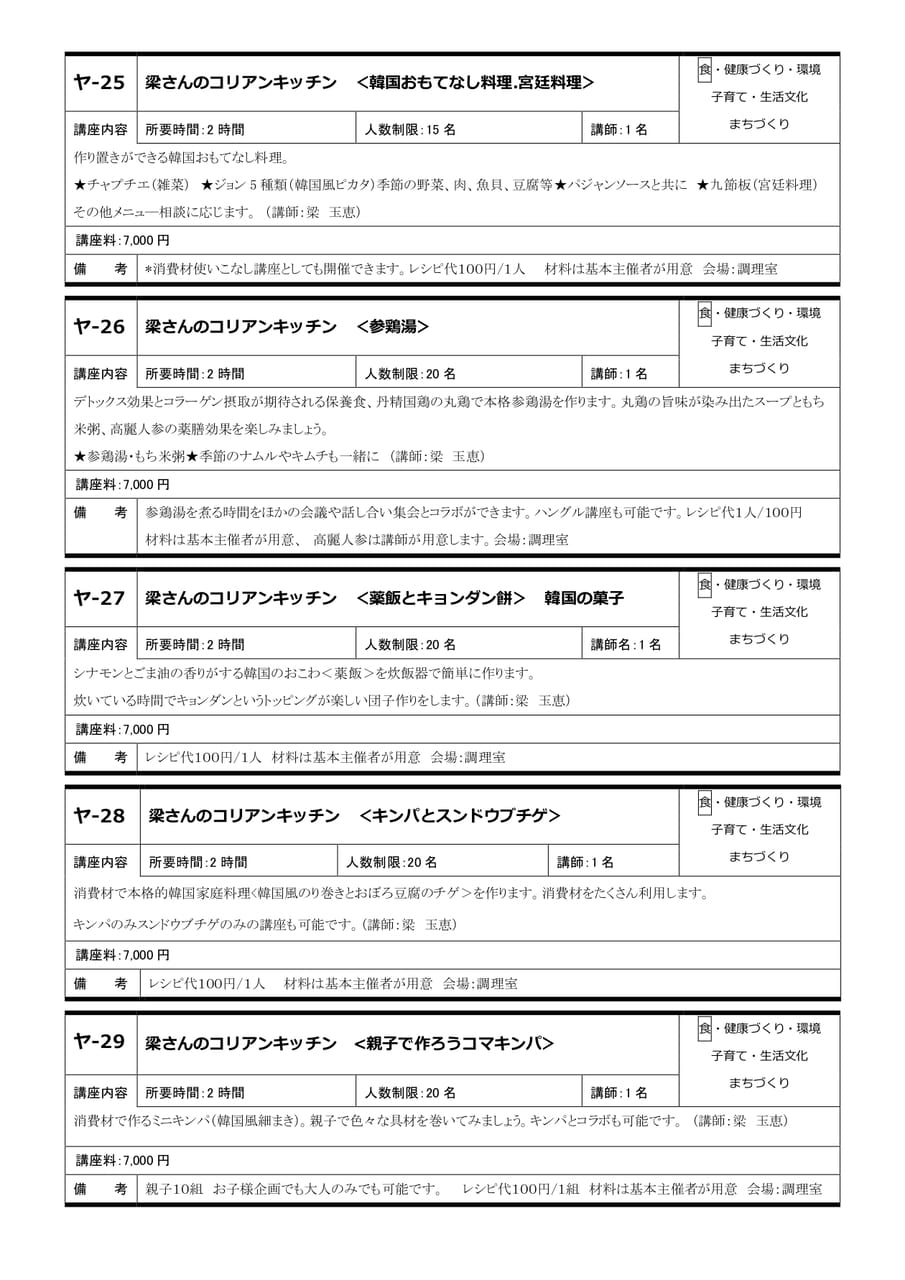 ヤ-25 梁さんのコリアンキッチン　＜韓国おもてなし料理.宮廷料理＞
食・健康づくり・環境
子育て・生活文化
まちづくり
講座内容 所要時間：2 時間 人数制限：15 名 講師：1 名
作り置きができる韓国おもてなし料理。
★チャプチエ（雑菜）　★ジョン 5 種類（韓国風ピカタ）季節の野菜、肉、魚貝、豆腐等★パジャンソースと共に　★九節板（宮廷料理）
その他メニュ―相談に応じます。（講師：梁　玉恵）
講座料：7,000 円
備　考 *消費材使いこなし講座としても開催できます。レシピ代100円/1人　材料は基本主催者が用意　会場：調理室
ヤ-26 梁さんのコリアンキッチン　＜参鶏湯＞
食・健康づくり・環境
子育て・生活文化
まちづくり
講座内容 所要時間：2 時間 人数制限：20 名 講師：1 名
デトックス効果とコラーゲン摂取が期待される保養食、丹精国鶏の丸鶏で本格参鶏湯を作ります。丸鶏の旨味が染み出たスープともち
米粥、高麗人参の薬膳効果を楽しみましょう。
★参鶏湯・もち米粥★季節のナムルやキムチも一緒に　（講師：梁　玉恵）
講座料：7,000 円
備　考 参鶏湯を煮る時間をほかの会議や話し合い集会とコラボができます。ハングル講座も可能です。レシピ代1人/100円
材料は基本主催者が用意、　高麗人参は講師が用意します。会場：調理室
ヤ-27 梁さんのコリアンキッチン　＜薬飯とキョンダン餅＞　韓国の菓子
食・健康づくり・環境
子育て・生活文化
まちづくり
講座内容 所要時間：2 時間 人数制限：20 名 講師名：1 名
シナモンとごま油の香りがする韓国のおこわ＜薬飯＞を炊飯器で簡単に作ります。
炊いている時間でキョンダンというトッピングが楽しい団子作りをします。（講師：梁　玉恵）
講座料：7,000 円
備　考 レシピ代100円/1人　材料は基本主催者が用意　会場：調理室
ヤ-28 梁さんのコリアンキッチン　＜キンパとスンドウブチゲ＞
食・健康づくり・環境
子育て・生活文化
まちづくり
講座内容 所要時間：2 時間 人数制限：20 名 講師：1 名
消費材で本格的韓国家庭料理＜韓国風のり巻きとおぼろ豆腐のチゲ＞を作ります。消費材をたくさん利用します。
キンパのみスンドウブチゲのみの講座も可能です。（講師：梁　玉恵）
講座料：7,000 円
備　考 レシピ代100円/1人　材料は基本主催者が用意　会場：調理室
ヤ-29 梁さんのコリアンキッチン　＜親子で作ろうコマキンパ＞
食・健康づくり・環境
子育て・生活文化
まちづくり
講座内容 所要時間：2 時間 人数制限：20 名 講師：1 名
消費材で作るミニキンパ（韓国風細まき）。親子で色々な具材を巻いてみましょう。キンパとコラボも可能です。　（講師：梁　玉恵）
講座料：7,000 円
備　考 親子10組　お子様企画でも大人のみでも可能です。　レシピ代100円/1組　材料は基本主催者が用意　会場：調理室